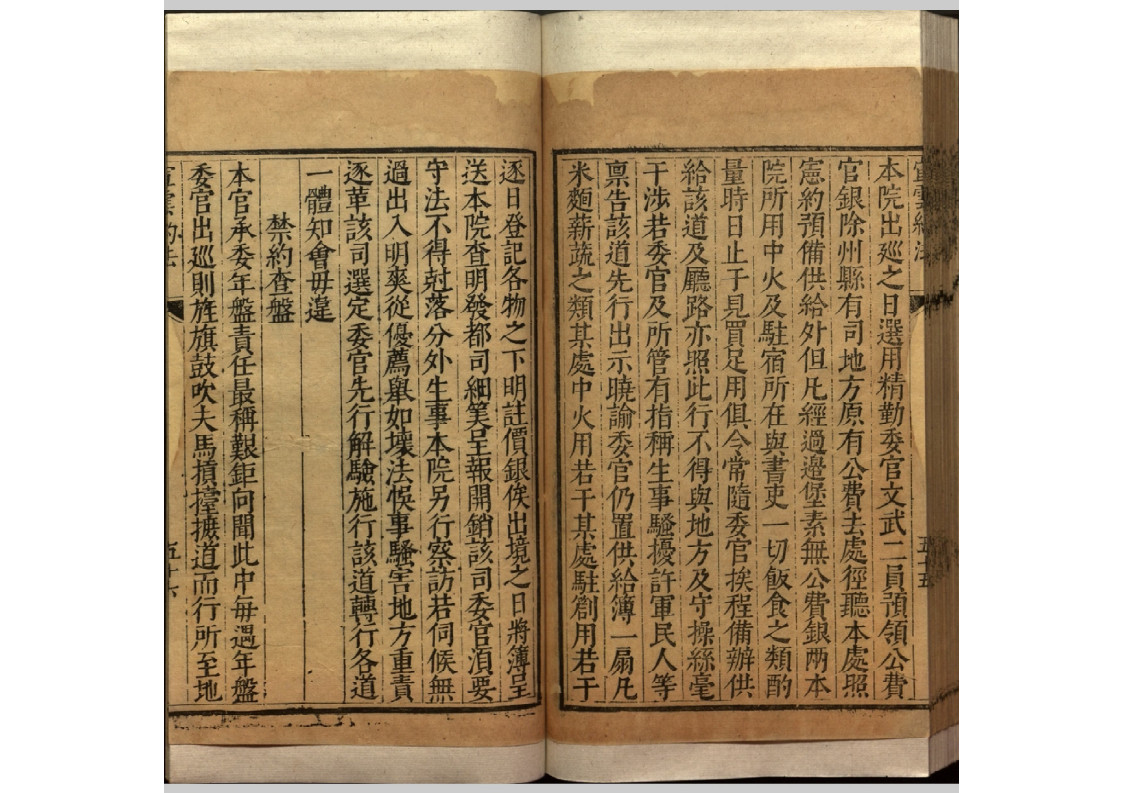 本院出巡之日選用精勤委官文武二員預領公費
官銀除州縣有司地方原有公費去處徑聽本處照
憲約預備供給外但凡經過邊堡素無公費銀两本
院所用中火及駐宿所在與書吏一切飯食之類酌
量時日止于見買足用俱令常隨委官挨程備辦供
給該道及廳路亦照此行不得與地方及守操絲毫
干涉若委官及所管有指稱生事騷擾許軍民人等
禀告該道先行出示曉諭委官仍置供給簿一扇凡
米麵薪蔬之類其處中火用若干其處駐劄用若干
逐日登記各物之下明註價銀俟出境之日將簿呈
送本院查明發都司細筭呈報開銷該司委官湏要
守法不得尅落分外生事本院另行察訪若伺候無
過出入明爽從優薦舉如壞法悞事騷害地方重責
逐革該司選定委官先行解驗施行該道轉行各道
一體知會毋違
禁約查盤
本官承委年盤責任最稱艱鉅向聞此中每遇年盤
委官出巡則旌旗鼓吹夫馬摃擡摭道而行所至地
五十五
五十六